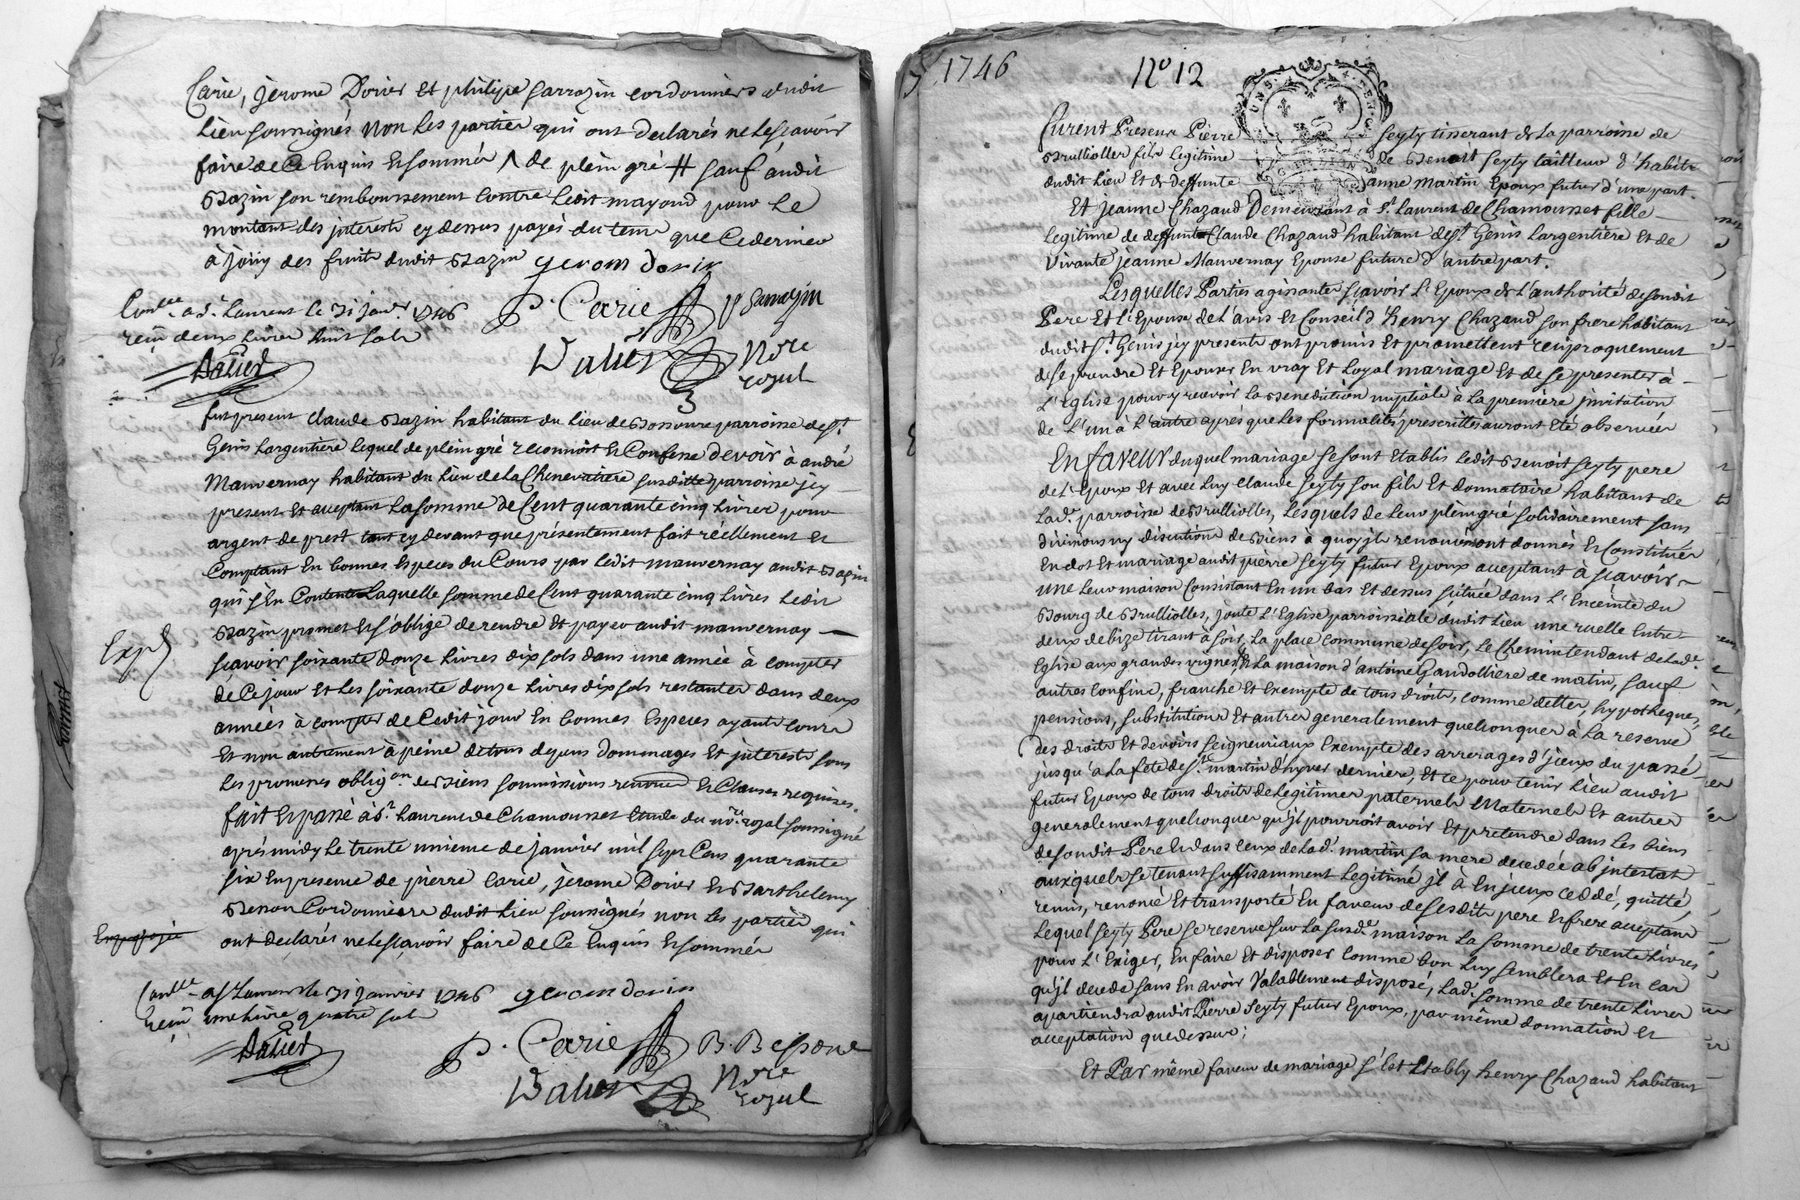 Carie, jerome Dorier et philipe sarrazin cordonniers dudit
Lieu soussignés non les parties qui ont declarés ne le scavoir
faire de ce Enquis et sommés de plein gré # sauf audit
Bazin son remboursement contre ledit mayoud pour le
montant des interests cy dessus payés du tems que ce dernier
à joüy des fruits dudit Bazin gerom dorir
P. Carie P Sarrazin
Conllé a St Laurent le 31 janr 1746
reçu deux Livres huit sols
Valier Nore
royal
fut present Claude Bazin habitant du Lieu de parroisse de St
Genis Largentiere lequel de plein gré reconnoit et Confesse devoir à andré
Mauvernay habitant du Lieu de la Chenevatiere susditte parroisse jcy
present et acceptant la somme de Cent quarante cinq Livres pour
argent de prest tant cy devant que présentement fait réellement et
Comptant En bonnes Especes du Cours par ledit mauvernay audit Bazin
qui s'En Contente Laquelle somme de Cent quarante cinq Livres ledit
Bazin promet et s'oblige de rendre et payer audit mauvernay
scavoir soixante douze Livres dix sols dans une année à compter
de Ce jour et les soixante douze Livres dix sols restantes dans deux
années à compter de Cedit jour En bonnes Especes ayants cours
et non autrement à peine de tous depens dommages et interests sous
les promesses obligon de Biens soumissions renonce et Clauses requises.
Exp
fait et passé à St Laurent de Chamousset Etude du nore royal soussigné
après midy le trente unieme de janvier mil sept Cens quarante
six En presence de pierre Carie, jerome Dorier et Barthelemy
Besson Cordonniers dudit Lieu soussignés non les parties qui
ont declarés ne le scavoir faire de Ce Enquis et sommés
Conllé a St Laurent le 31 janvier 1746 gerom dorir
reçu une livre quatre sols
P. Carie B. Besson
Valier Nore
royal
1746 No 12
Furent Presens Pierre Seyty tisserant de la parroisse de
Brulliolles fils legitime de Benoit Seyty tailleur d'habits
dudit Lieu et de deffunte anne Martin Epoux futur d'une part.
Et Jeanne Chazaud Demeurant à St Laurent de Chamousset fille
legitime de deffunt Claude Chazaud habitant de St Genis Largentiere et de
Vivante Jeanne Mauvernay Epouse future d'autre part.
Lesquelles Parties agissantes scavoir l'Epoux de l'authorité de sondit
Pere et l'Epouse de l'avis et Conseil d'henry Chazaud son frere habitant
dudit St Genis jcy presents ont promis et promettent reciproquement
de se prendre et Epouser En vray et Loyal mariage et de se presenter à
L'Eglise pour y recevoir la Benediction nuptiale à la premiere jnvitation
de l'un à l'autre après que les formalités prescrittes auront Eté observées
En faveur duquel mariage se sont Etablis ledit Benoit Seyty pere
de l'Epoux et avec luy Claude Seyty son fils et donnataire habitant de
Lade parroisse de Brulliolles, Lesquels de leur plein gré solidairement sans
divisions ny discution de Biens à quoy jls renoncent ont donnés et Constitués
En dot et mariage audit pierre Seyty futur Epoux acceptant à scavoir
une leur maison Consistant En un bas et dessus située dans l'Enceinte du
Bourg de Brulliolles, joute l'Eglise parroissiale dudit Lieu une ruelle Entre
deux de bize tirant à soir, La place commune de soir, Le Chemin tendant de lade
Eglise aux grandes vignes & La maison d'antoine Gandolliere de matin, sauf
autres Confins, franche et Exempte de tous droits, comme dettes, hypotheques,
pensions, substitutions et autres generalement quelconques à la reserve
des droits et devoirs seigneuriaux Exempte des arrerages d'jceux du passé
jusqu'a la fete de St martin d'hyver derniere, et ce pour tenir Lieu audit
futur Epoux de tous droits de legitimes paternels Maternels et autres
generalement quelconques qu'jl pourroit avoir et pretendre dans les biens
de sondit Pere et dans ceux de lade martin sa mere decedée ab intestat
auxquels se tenant suffisamment Legitimé jl à En jceux ceddé, quitté,
remis, renoncé et transporté En faveur de sesdits pere et frere acceptans
Lequel Seyty Pere se reserve sur la susde maison La somme de trente livres
pour l'Exiger, En faire et disposer comme bon luy semblera et En cas
qu'jl decede sans En avoir Valablement disposé, Lade somme de trente Livres
apartiendra audit Pierre Seyty futur Epoux, par même donnation et
acceptation que dessus;
Et Par même faveur de mariage s'est Etably henry Chazaud habitant